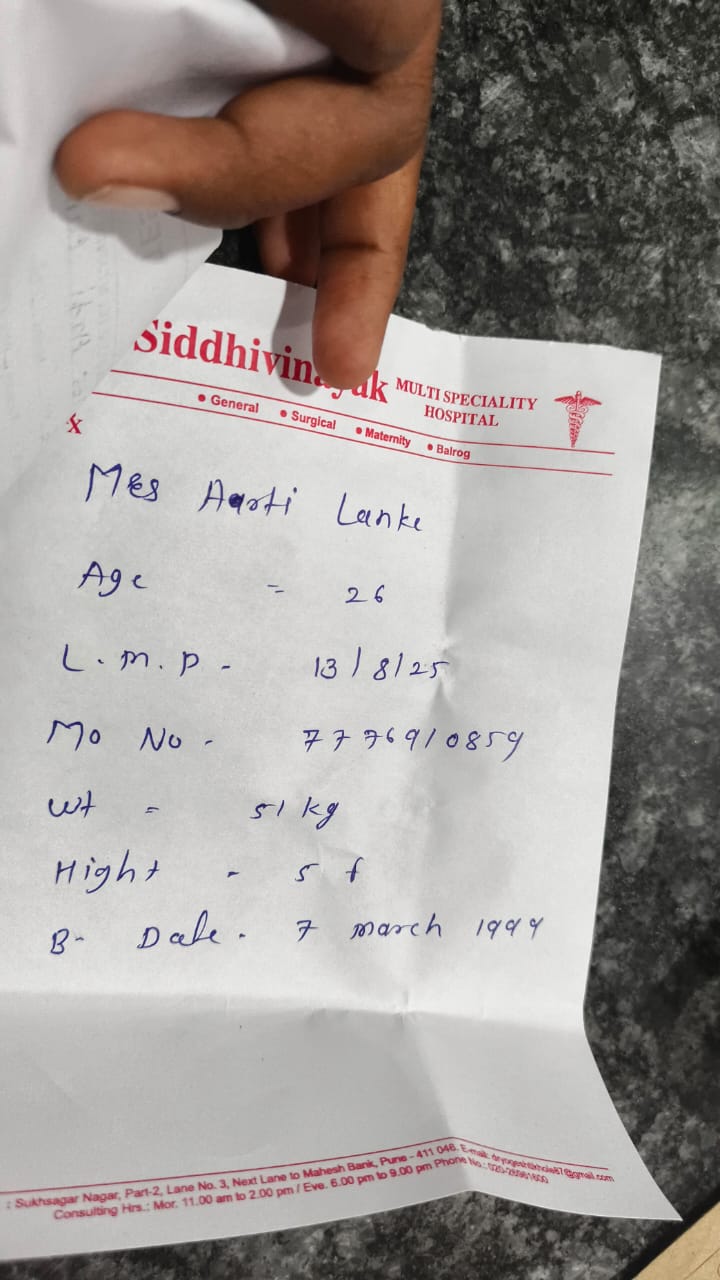 Siddhivinayak MULTI SPECIALITY
HOSPITAL
• General • Surgical • Maternity • Balrog
Mrs Aarti Lanke
Age = 26
L.M.P - 13/8/25
Mo No - 7776910859
wt = 51 kg
Hight - 5 f
B- Date - 7 march 1999
: Sukhsagar Nagar, Part-2, Lane No. 3, Next Lane to Mahesh Bank, Pune - 411 046. E-mail:
Consulting Hrs.: Mor. 11.00 am to 2.00 pm / Eve. 6.00 pm to 9.00 pm Phone No.: